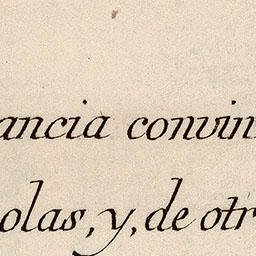 ancia convin
olas, y, de otr